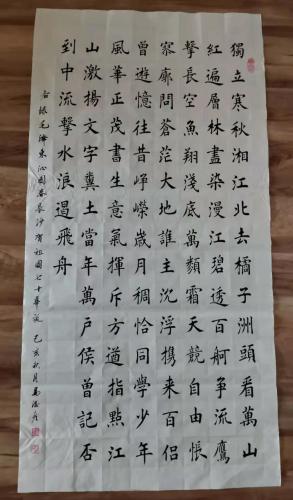 獨立寒秋湘江北去橘子洲頭看萬山
紅遍層林盡染漫江碧透百舸爭流鷹
擊長空魚翔淺底萬類霜天競自由悵
寥廓問蒼茫大地誰主沉浮携来百侶
曾遊憶往昔崢嶸歲月稠恰同學少年
風華正茂書生意氣揮斥方遒指點江
山激揚文字糞土當年萬戶侯曾記否
到中流擊水浪遏飛舟
右錄毛澤東沁園春長沙賀祖國七十華誕 己亥秋月